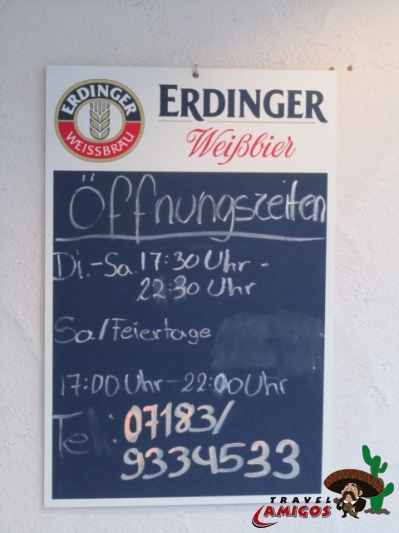 ERDINGER
WEISSBRÄU
ERDINGER
Weißbier
Öffnungszeiten
Di.-Sa. 17:30 Uhr -
22:30 Uhr
So./Feiertage
17:00 Uhr - 22:00 Uhr
Tel.: 07183/
9334533
TRAVEL
AMIGOS